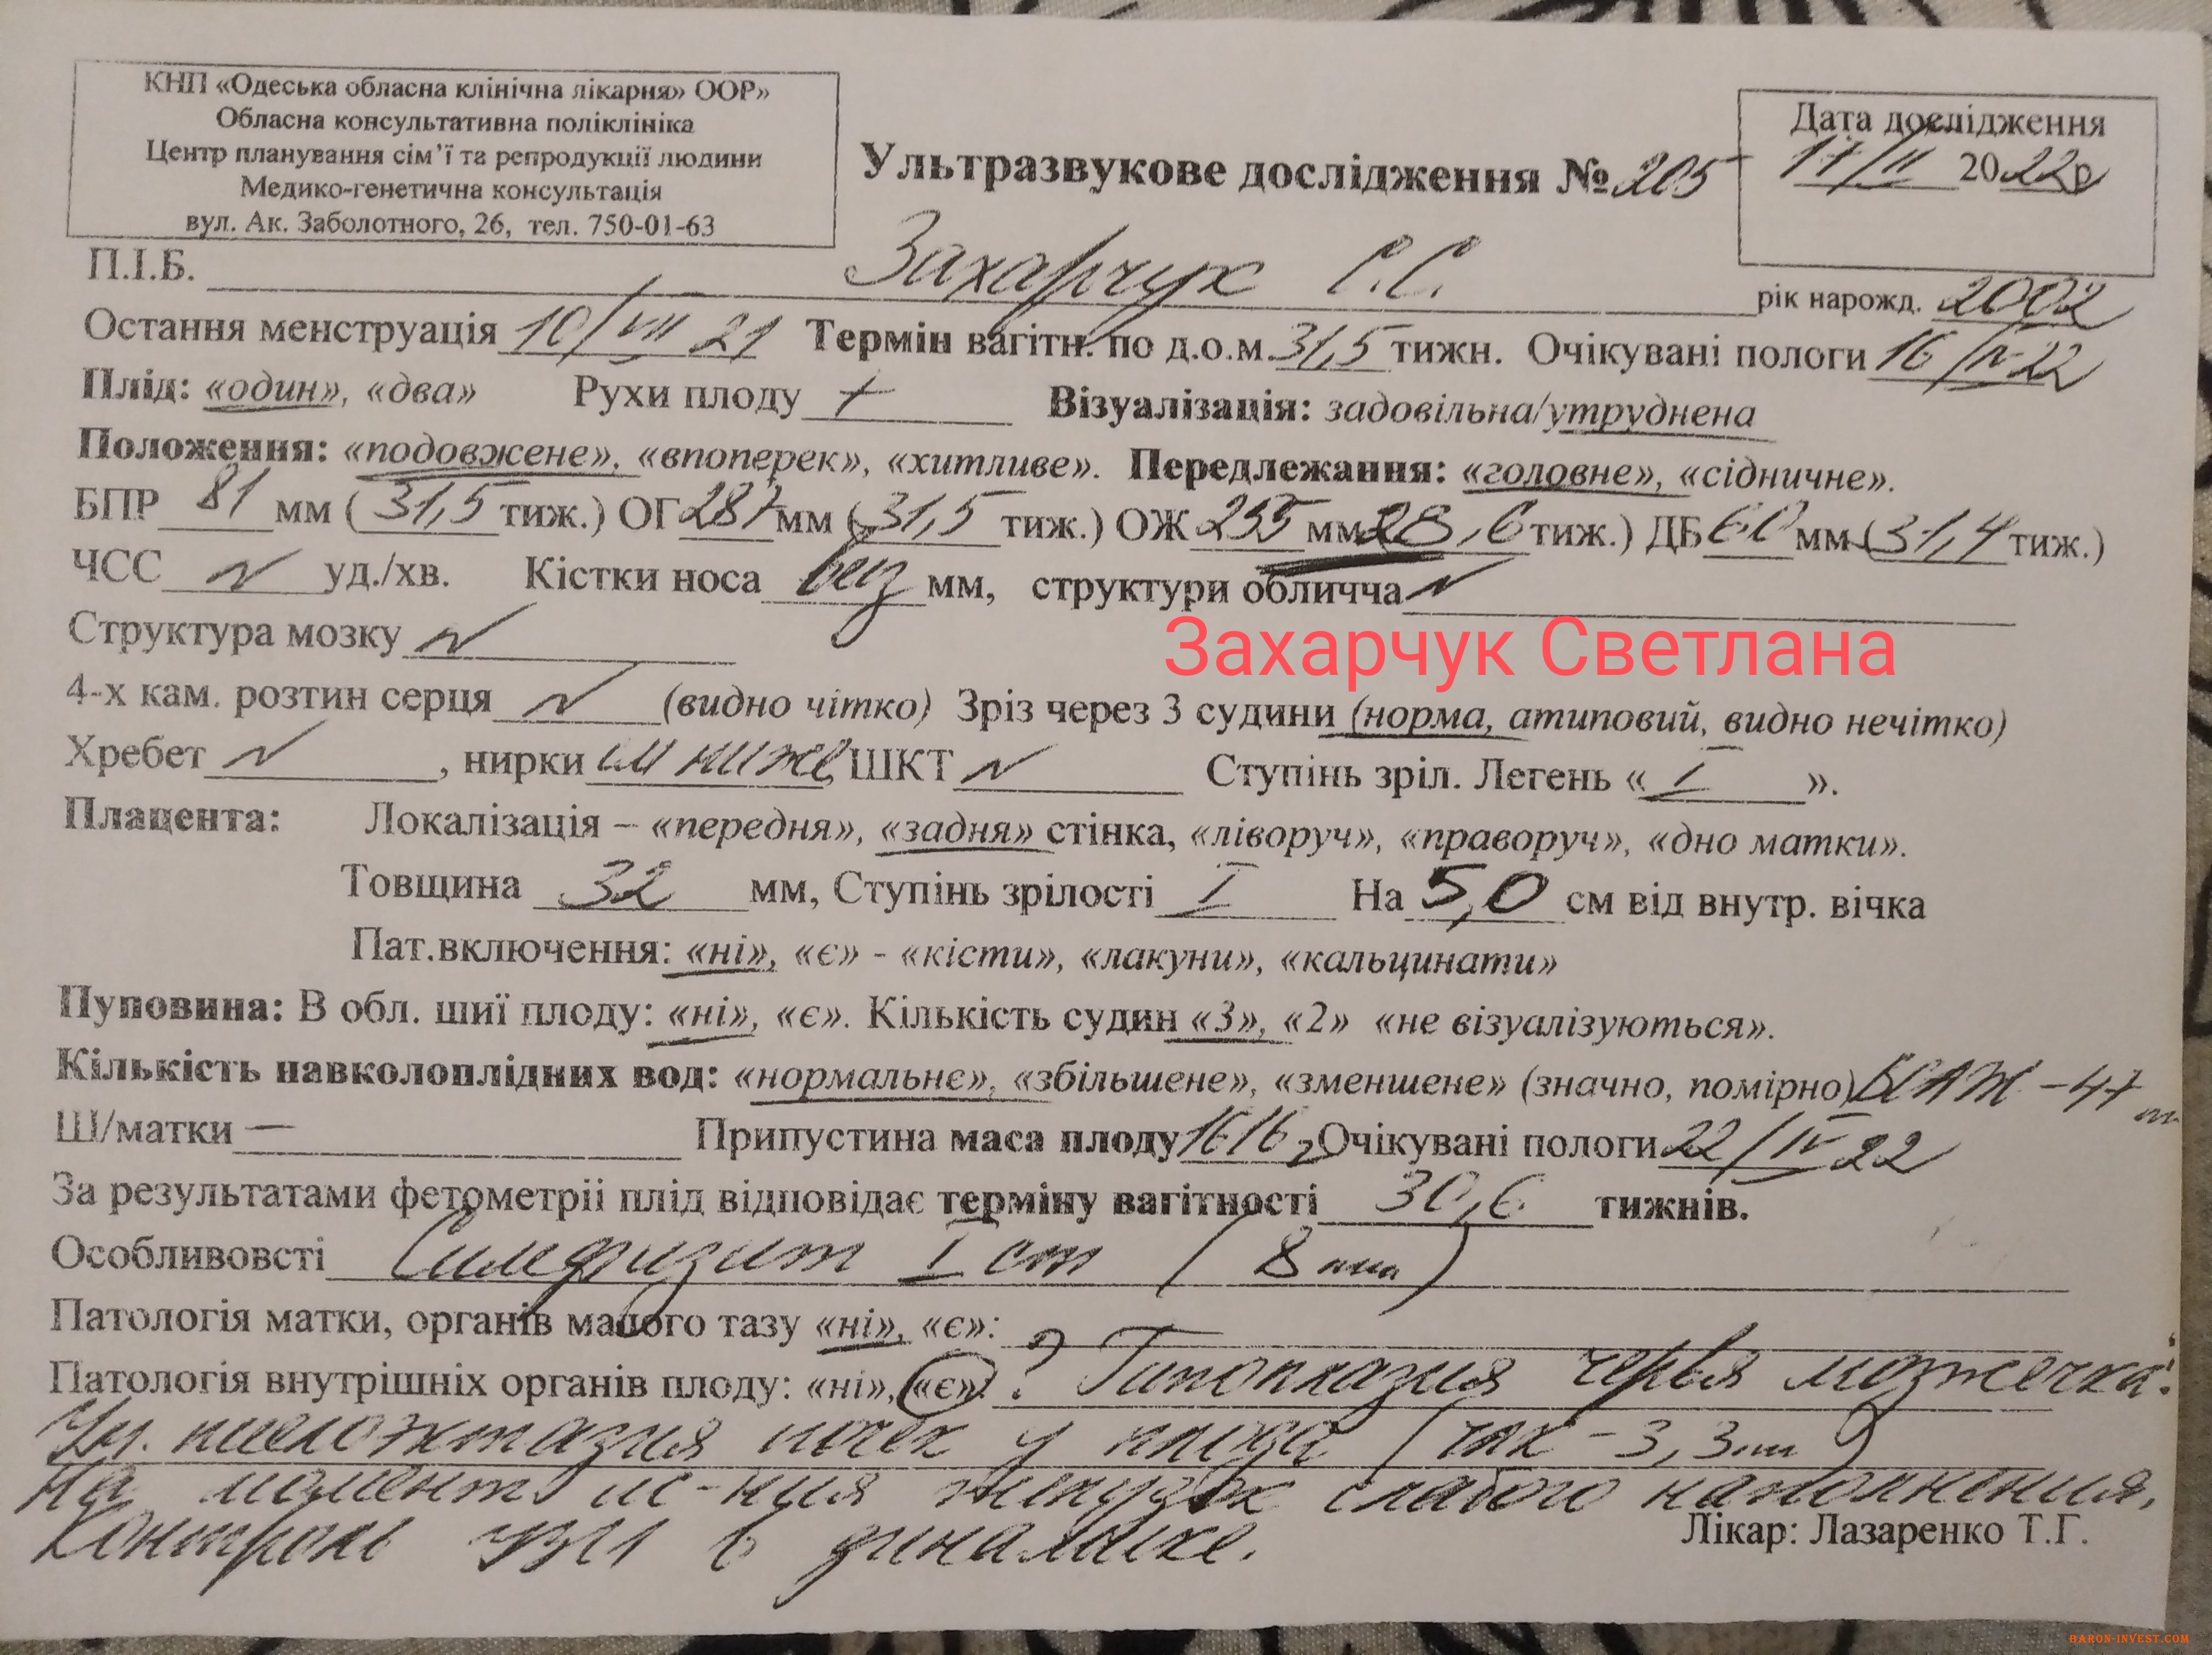 КНП «Одеська обласна клінічна лікарня» ООР»
Обласна консультативна поліклініка
Центр планування сім’ї та репродукції людини
Медико-генетична консультація
вул. Ак. Заболотного, 26, тел. 750-01-63
Ультразвукове дослідження № 205
Дата дослідження
17/II 2022р
П.І.Б. Захарчук С.С. рік нарожд. 2002
Остання менструація 10/VII 21 Термін вагітн. по д.о.м. 31,5 тижн. Очікувані пологи 16/IV 22
Плід: «один», «два» Рухи плоду + Візуалізація: задовільна/утруднена
Положення: «подовжене», «впоперек», «хитливе». Передлежання: «головне», «сідничне».
БПР 81 мм (31,5 тиж.) ОГ 287 мм (31,5 тиж.) ОЖ 255 мм (28,6 тиж.) ДБ 60 мм (31,4 тиж.)
ЧСС N уд./хв. Кістки носа виз мм, структури обличча N
Структура мозку N
Захарчук Светлана
4-х кам. розтин серця N (видно чітко) Зріз через 3 судини (норма, атиповий, видно нечітко)
Хребет N, нирки см ниже, ШКТ N Ступінь зріл. Легень «I».
Плацента: Локалізація – «передня», «задня» стінка, «ліворуч», «праворуч», «дно матки».
Товщина 32 мм, Ступінь зрілості I На 5,0 см від внутр. вічка
Пат.включення: «ні», «є» - «кісти», «лакуни», «кальцинати»
Пуповина: В обл. шиї плоду: «ні», «є». Кількість судин «3», «2» «не візуалізуються».
Кількість навколоплідних вод: «нормальне», «збільшене», «зменшене» (значно, помірно) - 47 мм
Ш/матки — Припустина маса плоду 1616 г Очікувані пологи 22/IV 22
За результатами фетометріі плід відповідає терміну вагітності 30,6 тижнів.
Особливовсті Симфизит I ст (8 мм)
Патологія матки, органів малого тазу «ні», «є»:
Патологія внутрішніх органів плоду: «ні», «є»: ? Гипоплазия червя мозжечка.
Ум. пиелоэктазия почек у плода (члк - 3,3 мм)
На момент ис-ния желудок слабого наполнения.
Контроль УЗИ в динамике.
Лікар: Лазаренко Т.Г.
BARON-INVEST.COM